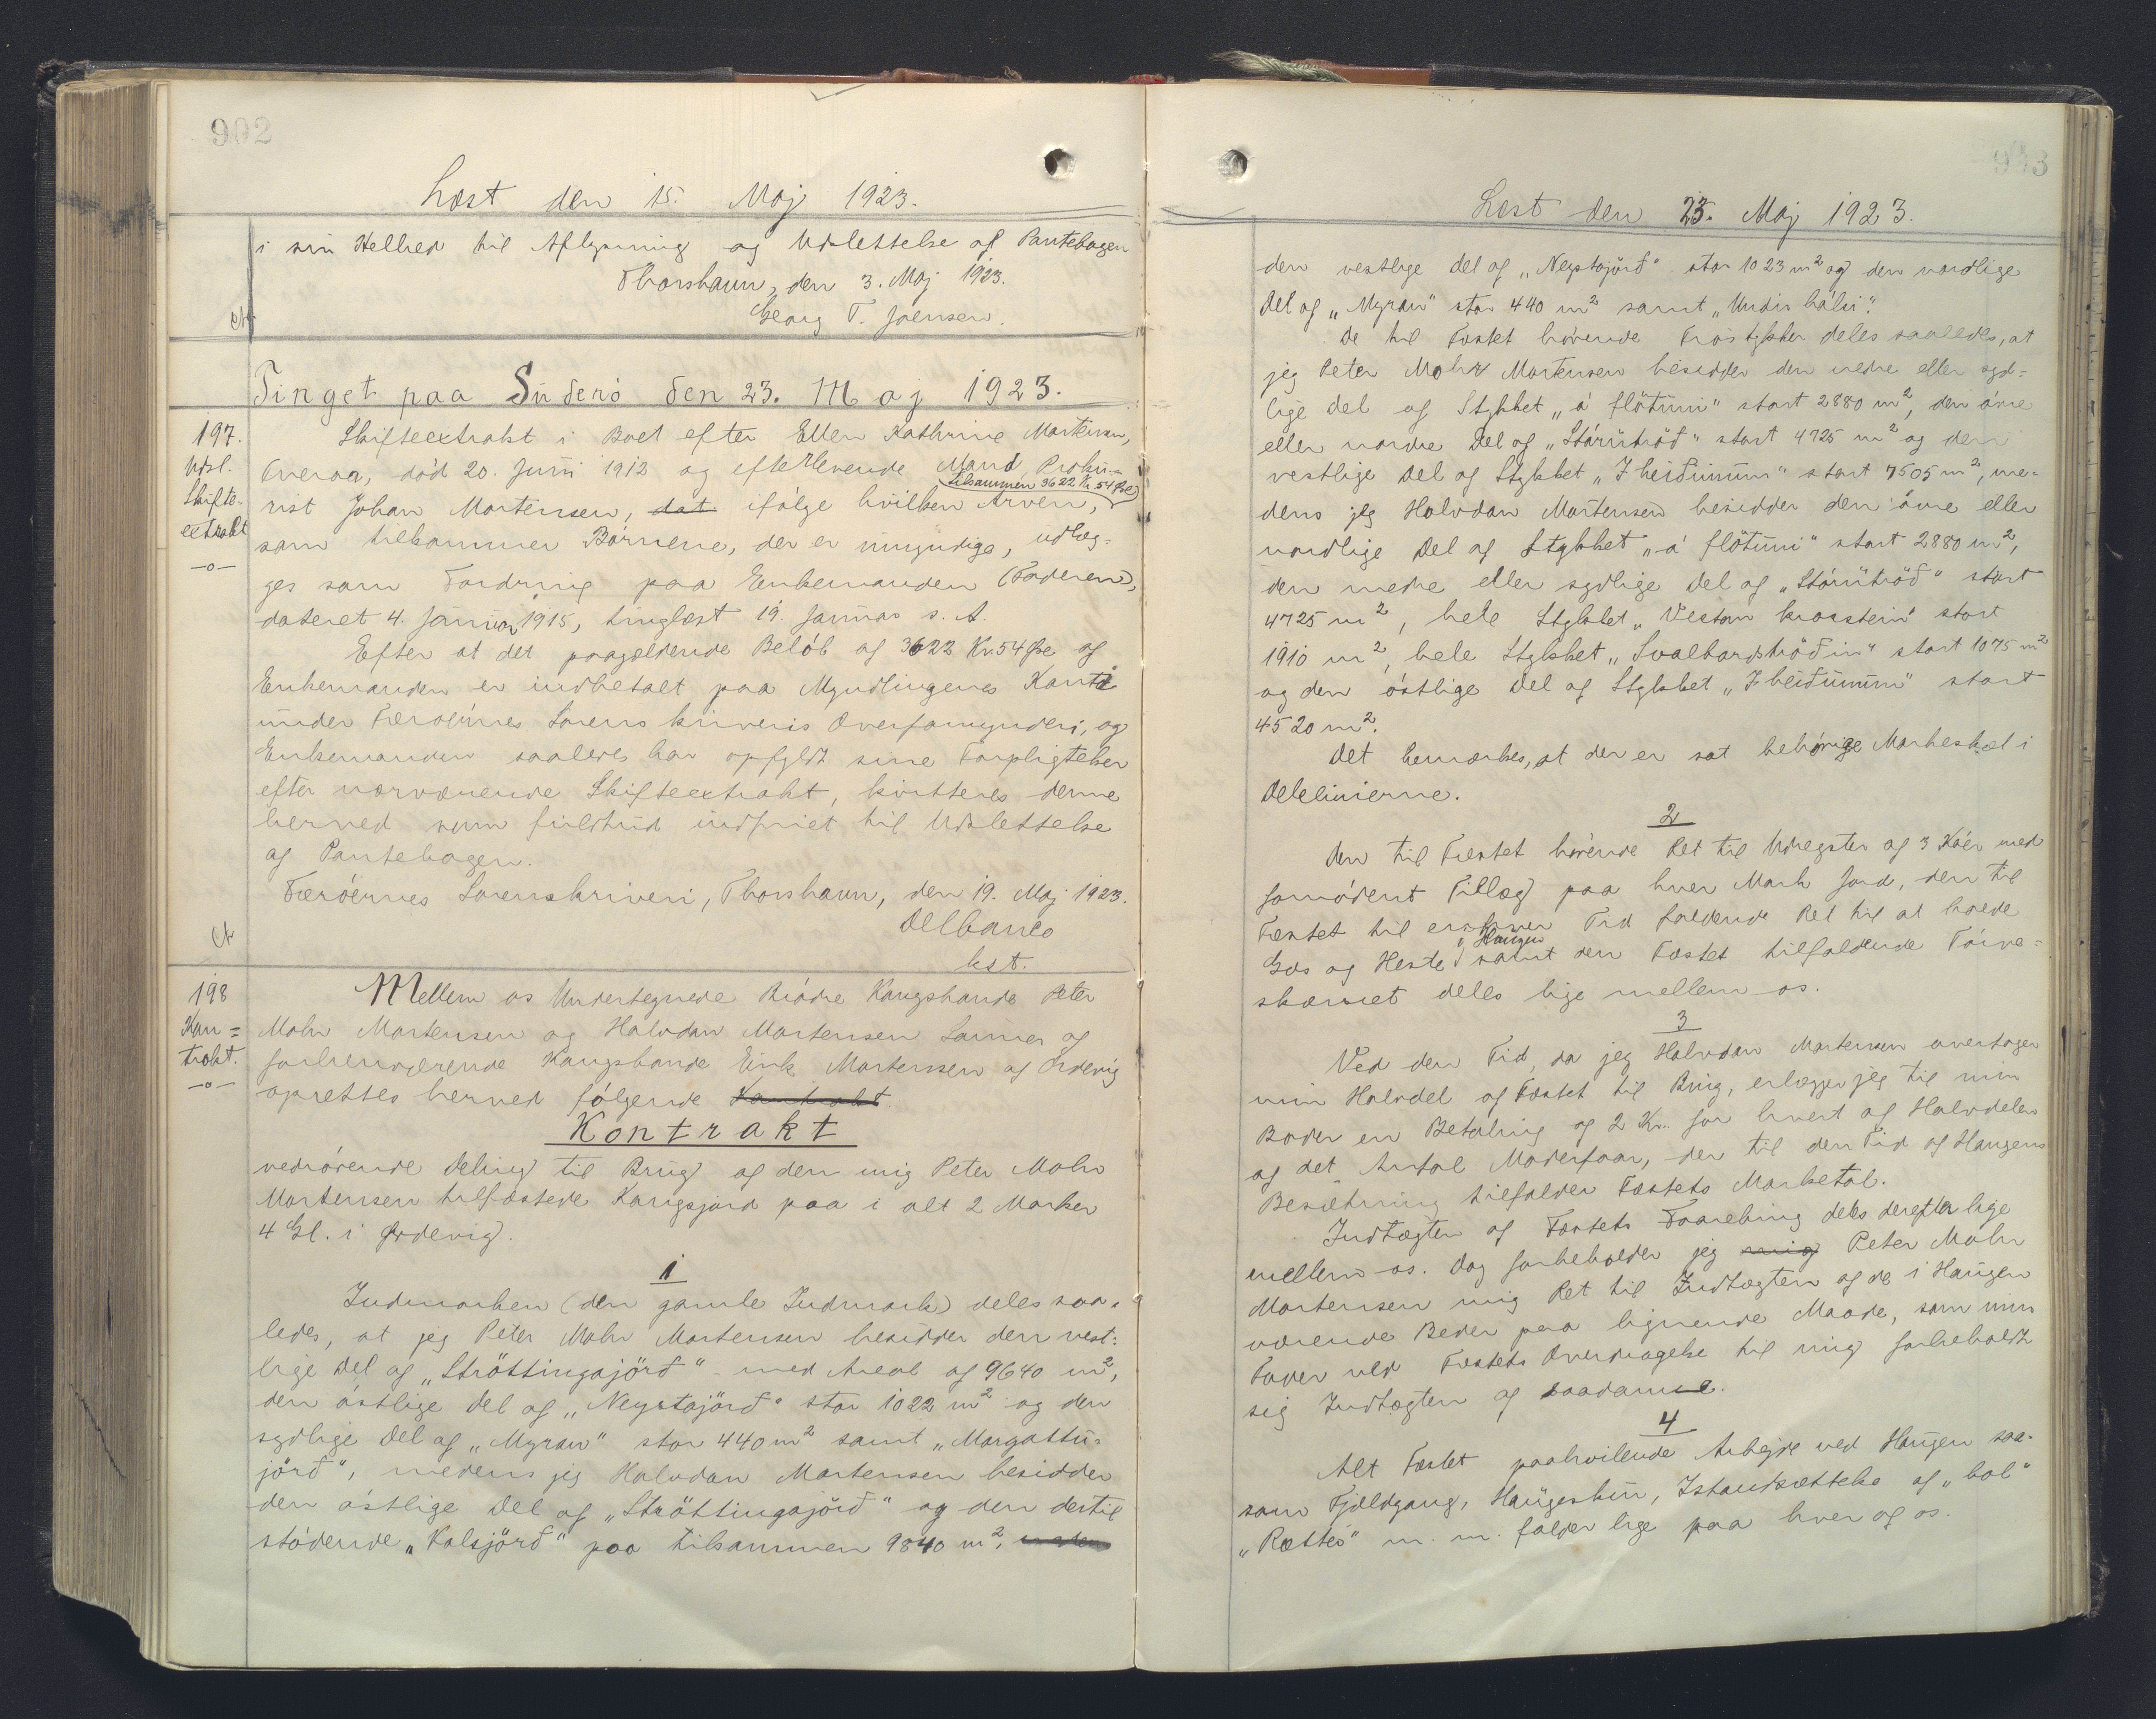 902
Læst den 15. Maj 1923.
i sin Helhed til Aflysning og Udslettelse af Pantebogen
Thorshavn, den 3. Maj 1923.
Georg T. Joensen.
Tinget paa Suderö den 23. Maj 1923.
197.
Udsl.
Skifte-
extrakt
—o—
Skifteextrakt i Boet efter Ellen Kathrine Mortensen,
Øveraa, død 20. Juni 1912 og efterlevende Mand, Proku-
tilsammen 3622 Kr. 54 Øre
rist Johan Mortensen, dat ifølge hvilken Arven,
som tilkommer Børnene, der er umyndige, udlæg-
ges som Fordring paa Enkemanden (Faderen),
dateret 4. Januar 1915, tinglæst 19. Januar s. A.
Efter at det paagældende Beløb af 3622 Kr. 54 Øre af
Enkemanden er indbetalt paa Myndlingenes Konti
under Færøernes Sorenskriveris Overformynderi, og
Enkemanden saaledes har opfyldt sine Forpligtelser
efter nærværende Skifteextrakt, kvitteres denne
herved som fuldtud indfriet til Udslettelse
af Pantebogen.
Færöernes Sorenskriveri, Thorshavn, den 19. Maj 1923.
Delbanco
kst.
198
Kon=
trakt.
—o—
Mellem os Undertegnede Brödre Kongsbonde Peter
Mohr Mortensen og Halvdan Mortensen Sumer og
forhenværende Kongsbonde Eirik Mortensen af Ørdevig
oprettes herved fölgende Kontrakt
Kontrakt
vedrörende Deling til Brug af den mig Peter Mohr
Mortensen tilfæstede Kongsjord paa i alt 2 Marker
4 Gl. i Ørdevig.
1
Indmarken (den gamle Indmark) deles saa-
ledes, at jeg Peter Mohr Mortensen besidder den vest-
lige Del af „Ströttingajörð" med Areal af 9640 m²,
den östlige Del af „Neystajörð" stor 1022 m² og den
sydlige Del af „Myran" stor 440 m² samt „Margattu-
jörð", medens jeg Halvdan Mortensen besidder
den östlige Del af „Ströttingajörð" og den dertil
stödende „Kalsjörð" paa tilsammen 9840 m²,
903
Læst den 23. Maj 1923.
den vestlige Del af „Neystajörð" stor 1023 m² og den nordlige
Del af „Myran" stor 440 m² samt „Undir hálsi".
De til Fæstet hörende Trøstykker deles saaledes, at
jeg Peter Mohr Mortensen besidder den nedre eller syd-
lige Del af Stykket „á flötuni" stort 2880 m², den övre
eller nordre Del af „Stórutröð" stort 4725 m² og den
vestlige Del af Stykket „Í heiðunum" stort 7505 m², me-
dens jeg Halvdan Mortensen besidder den övre eller
nordlige Del af Stykket „á flötuni" stort 2880 m²,
den nedre eller sydlige Del af „Stórutröð" stort
4725 m², hele Stykket „Vestan krosstein" stort
1910 m², hele Stykket „Svalbardströðin" stort 1075 m²
og den östlige Del af Stykket „Í heiðunum" stort
4520 m².
Det bemærkes, at der er sat behörige Markeskel i
Delelinierne.
2
Den til Fæstet hörende Ret til Udregster af 3 Köer med
fornødent Tillæg paa hver Mark Jord, den til
Fæstet til enhver Tid faldende Ret til at holde
i Haugen
Gæs og Heste samt den Fæstet tilfaldende Törve-
skæret deles lige mellem os.
3
Ved den Tid, da jeg Halvdan Mortensen overtager
min Halvdel af Fæstet til Brug, erlægger jeg til min
Broder en Betaling af 2 Kr. for hvert af Halvdelen
af det Antal Moderfaar, der til den Tid af Haugens
Besætning tilfalder Fæstets Marketal.
Indtægten af Fæstets Faarebrug deles derefter lige
mellem os. Dog forbeholder jeg mig Peter Mohr
Mortensen mig Ret til Indtægten af de i Haugen
værende Beder paa lignende Maade, som min
Fader ved Fæstets Overdragelse til mig forbeholdt
sig Indtægten af saadanne.
4
Alt Fæstet paahvilende Arbejde ved Haugen saa-
som Fjeldgang, Haugeskur, Istandsættelse af „bol"
„Rættir" m. m. falder lige paa hver af os.